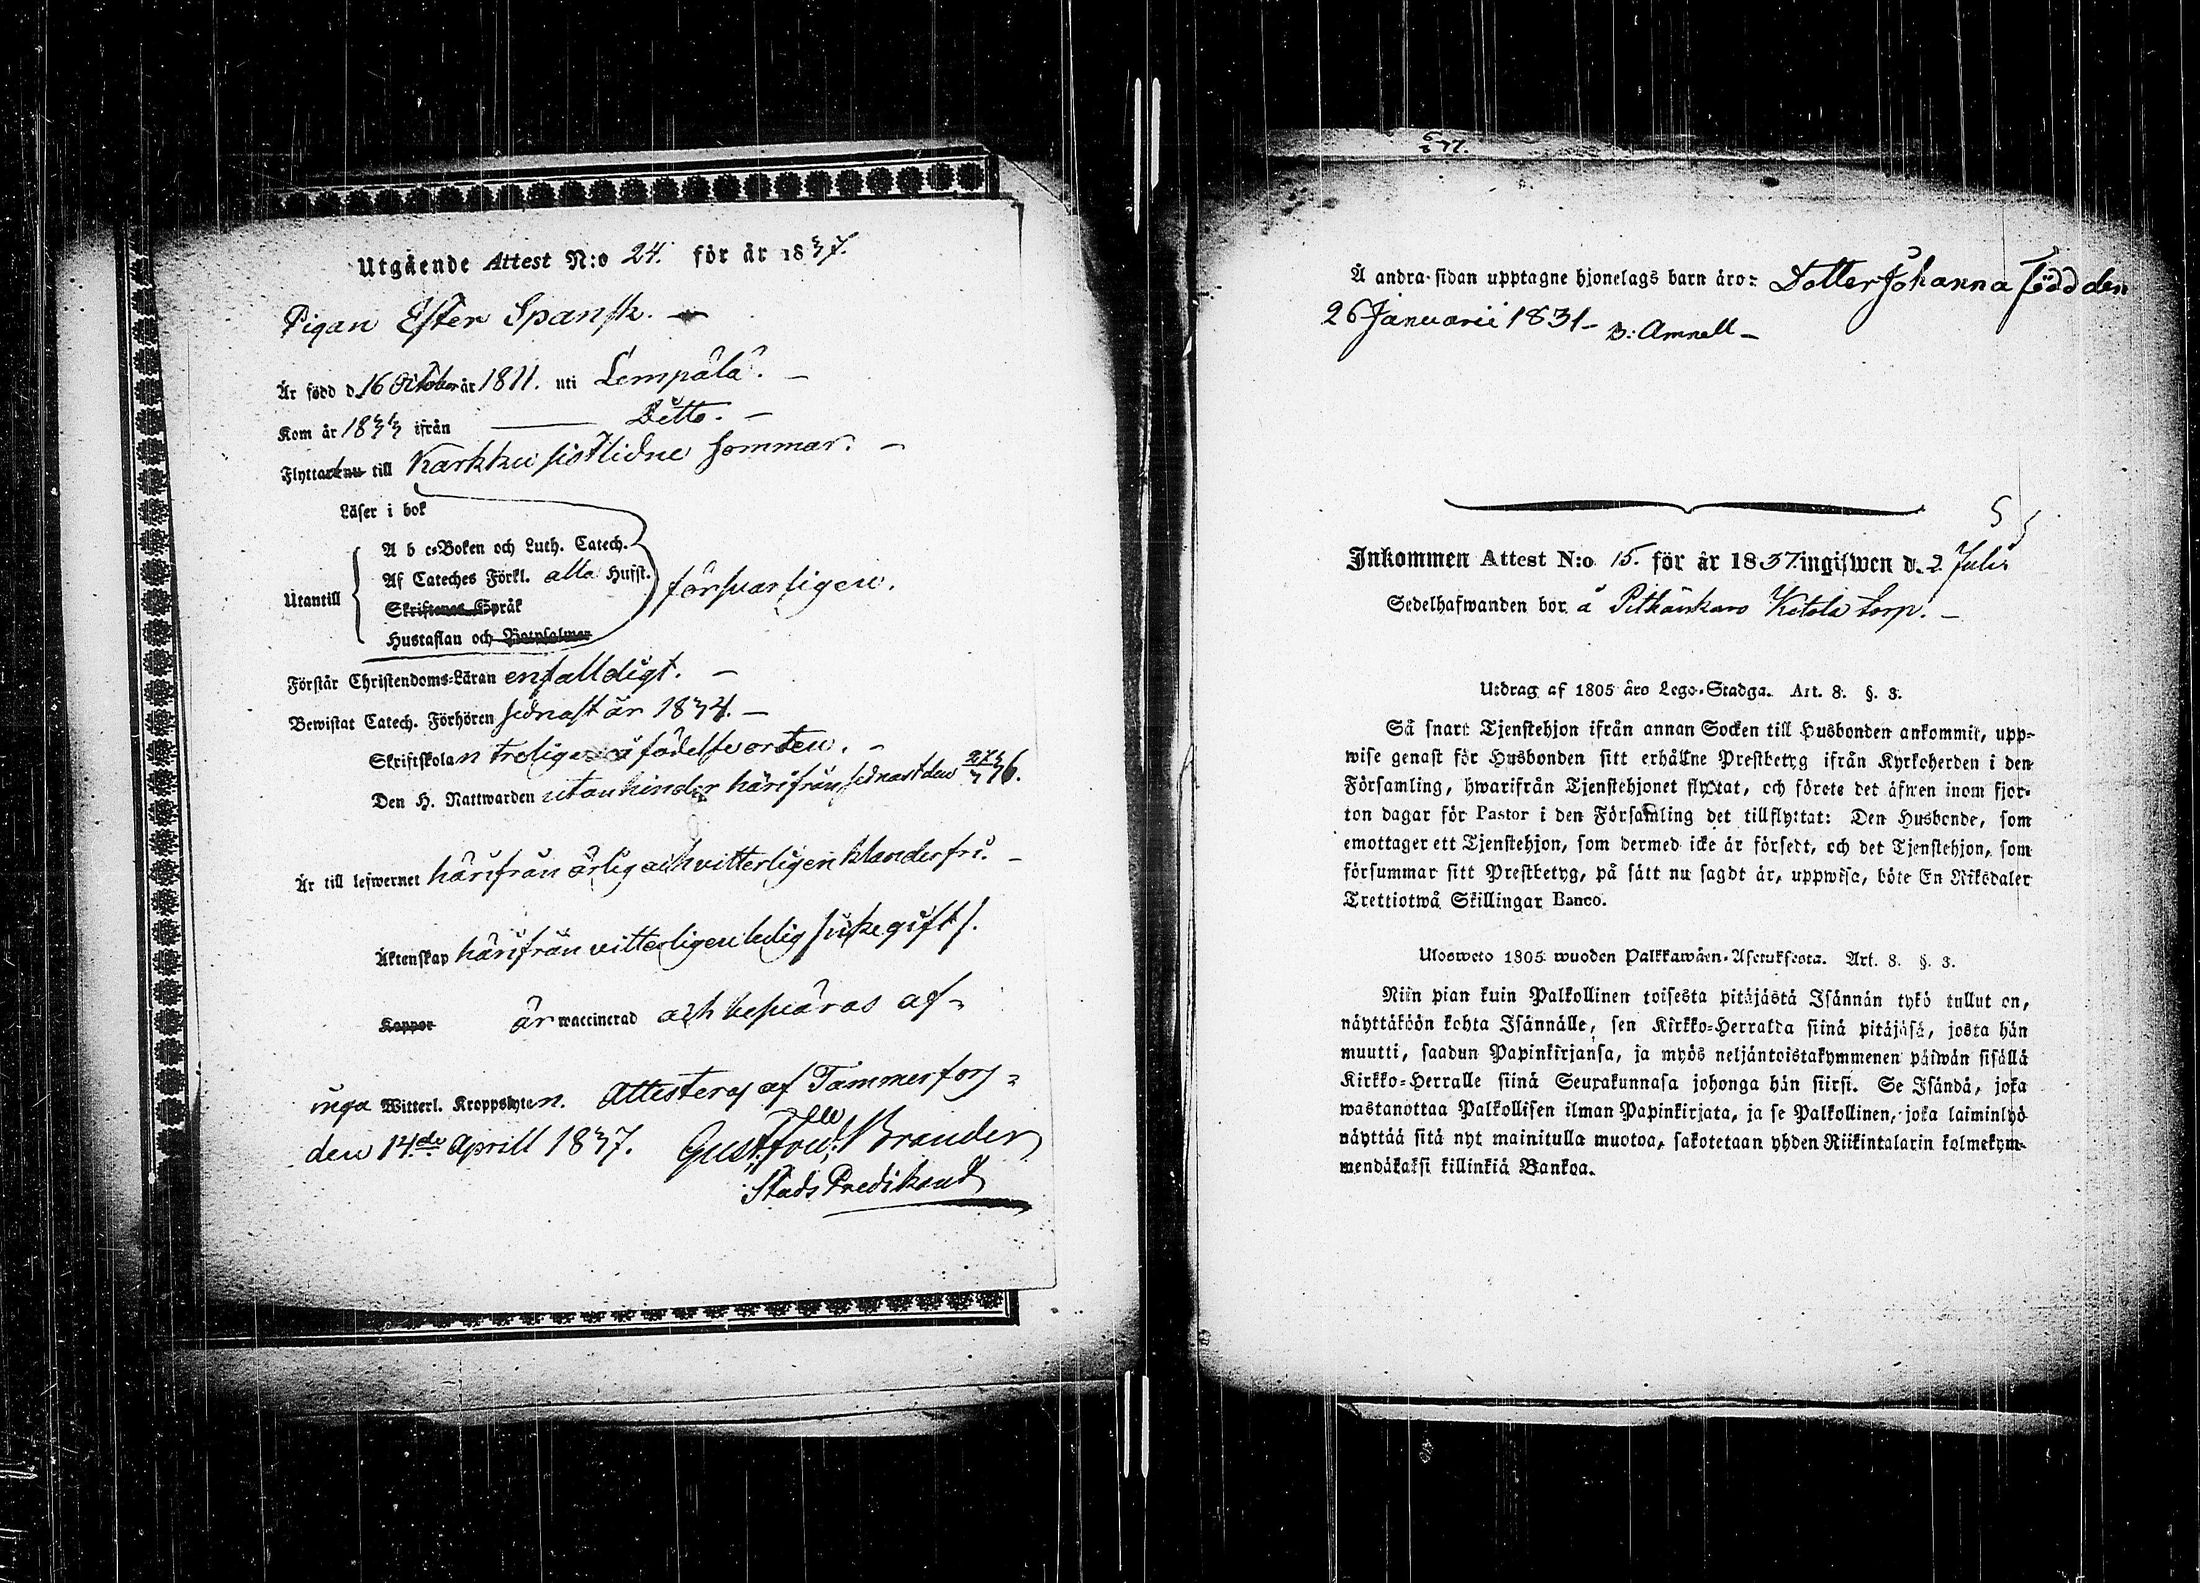 Utgående Attest N:o 24. för år 1837.
Pigan Ester Spansk. —
Är född d. 16 October år 1811. uti Lempälä. —
Kom år 1833 ifrån —— Ditto. —
Flyttar nu till Karkku sistlidne sommar. —
Läser i bok
A b c-Boken och Luth. Catech.
Af Cateches Förkl. alla Husst.
Utantill
försvarligen.
Skriftenes Språk
Hustaflan och Botpsalmer
Förstår Christendoms-Läran enfalldigt. —
Bewistat Catech. Förhören sednast år 1834. —
Skriftskolan troligen å födelseorten. —
Den H. Nattwarden utan hinder härifrån sednast den 27/3 36.
Är till lefwernet härifrån ärlig och vitterligen klanderfri. —
Äktenskap härifrån vitterligen ledig /: icke gift :/.
Koppor är waccinerad och besväras af
inga Witterl. Kroppslyten. Attesteras af Tammerfors
den 14de Aprill 1837. Gust. Brander
Stads Predikant
637.
Å andra sidan upptagne hjonelags barn äro: Dotter Johanna född den
26 Januarii 1831 — B: Amnell —
5
Inkommen Attest N:o 15. för år 1837. ingifwen d. 2 Julii
Sedelhafwanden bor å Pitkänkaro Ketola torp. —
Utdrag af 1805 års Lego-Stadga. Art. 8. §. 3.
Så snart Tjenstehjon ifrån annan Socken till Husbonden ankommit, upp-
wise genast för Husbonden sitt erhållne Prestbetyg ifrån Kyrkoherden i den
Församling, hwarifrån Tjenstehjonet flyttat, och förete det äfwen inom fjor-
ton dagar för Pastor i den Församling det tillflyttat: Den Husbonde, som
emottager ett Tjenstehjon, som dermed icke är försedt, och det Tjenstehjon, som
försummar sitt Prestbetyg, på sätt nu sagdt är, uppwisa, böte En Riksdaler
Trettiotwå Skillingar Banco.
Uloswето 1805 wuoden Palkkawäen-Asetuksesta. Art. 8. §. 3.
Niin pian kuin Palkollinen toisesta pitäjästä Isännän tykö tullut on,
näyttäköön kohta Isännälle, sen Kirkko-Herralda siinä pitäjäsä, josta hän
muutti, saadun Papinkirjansa, ja myös neljäntoistakymmenen päiwän sisällä
Kirkko-Herralle siinä Seurakunnasa johonga hän siirsi. Se Isändä, joka
wastanottaa Palkollisen ilman Papinkirjata, ja se Palkollinen, joka laiminlyö
näyttää sitä nyt mainitulla muotoa, sakotetaan yhden Riikintalarin kolmekym-
mendäkaksi killinkiä Bankoa.